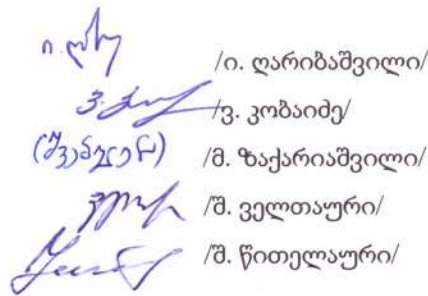 /ი. ღარიბაშვილი/
/ვ. კობაიძე/
(შვებულება) /მ. ზაქარიაშვილი/
/შ. ველთაური/
/შ. წითელაური/